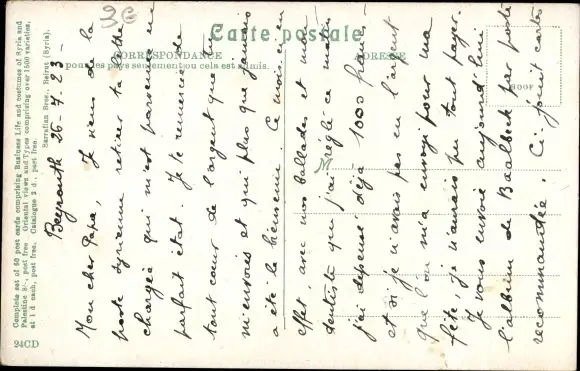 Carte postale
CORRESPONDANCE
ADRESSE
pour les pays seulement ou cela est admis.
Complete set of 50 post cards comprising Business Life and costumes of Syria and
Palestine 3/-, post free. Oriental views and Types comprising over 500 varieties,
at 1 d each, post free. Catalogue 3 d, post free.
Sarrafian Bros., Beirut (Syria).
24CD
Beyrouth 26-7-23-
Mon cher Papa, Je viens de la
poste syrienne retirer ta lettre
chargée qui m'est parvenue en
parfait état. Je te remercie de
tout cœur de l'argent que tu
m'envoies et qui plus que jamais
a été le bienvenu. Ce mois-ci en
effet, avec mes ballades et mon
dentiste que j'ai réglé ce matin
j'ai dépensé déjà 1000 francs
et si je n'avais pas eu l'argent
que l'on m'a envoyé pour ma
fête je n'aurais pu tout payer.
Je vous envoie aujourd'hui
l'album de Baalbeck par poste
recommandée. Ci-joint cartes